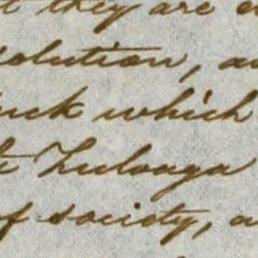 they are
olution, a
uck which
Zuloaga
of society, a